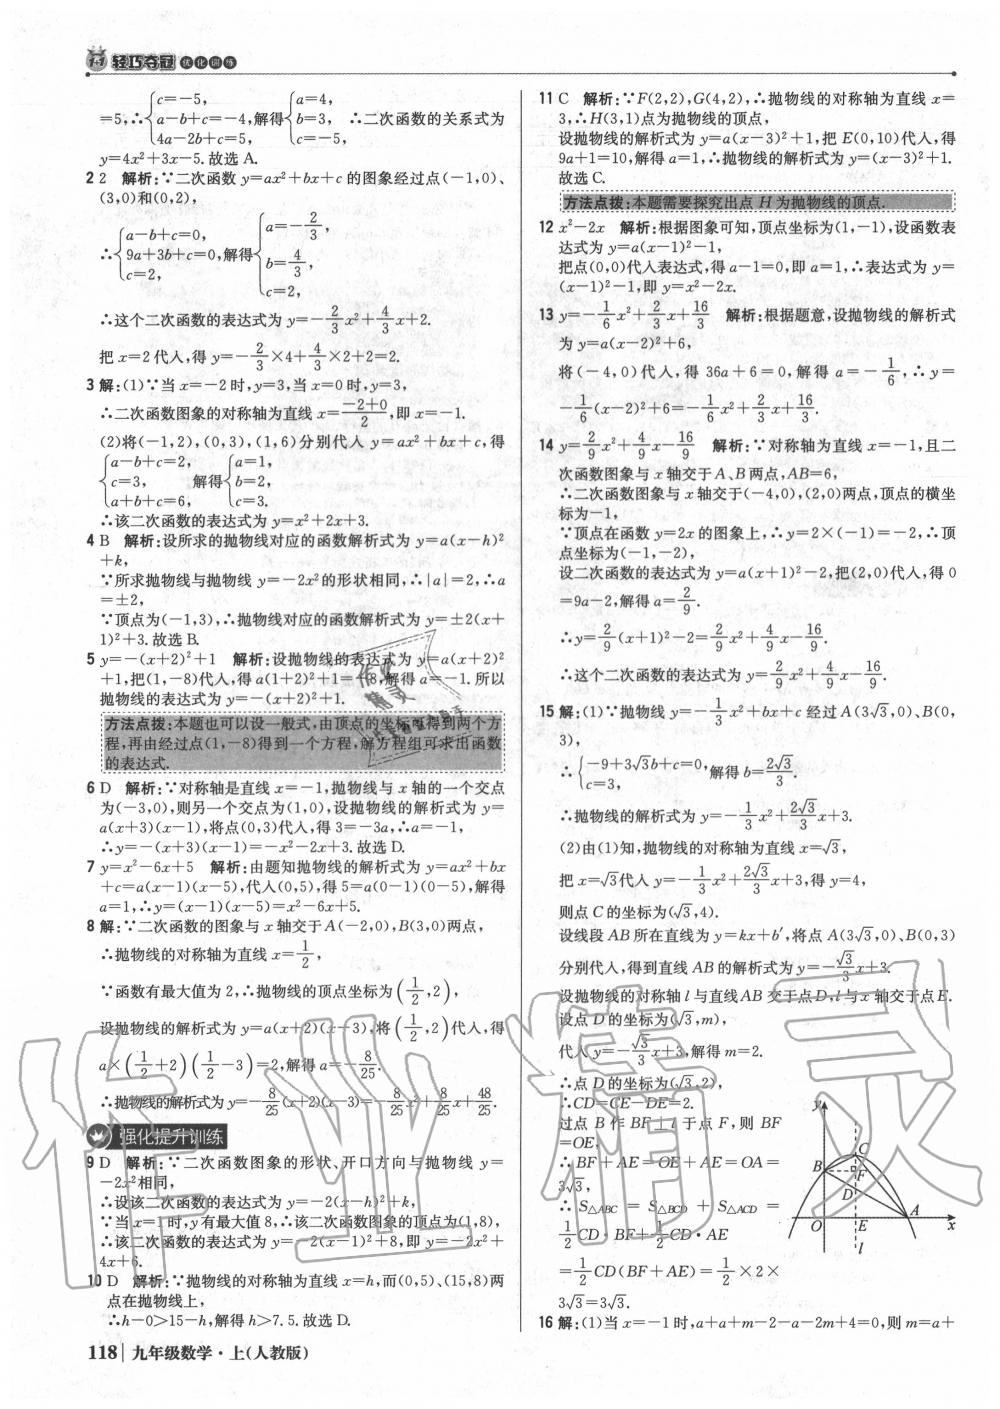 轻巧夺冠 优化训练
=5,∴{c=-5, a-b+c=-4, 4a-2b+c=5, 解得{a=4, b=3, c=-5, ∴二次函数的关系式为
y=4x²+3x-5.故选 A.
2 2 解析:∵二次函数 y=ax²+bx+c 的图象经过点(-1,0)、
(3,0)和(0,2),
∴{a-b+c=0, 9a+3b+c=0, c=2, 解得{a=-2/3, b=4/3, c=2,
∴这个二次函数的表达式为 y=-2/3x²+4/3x+2.
把 x=2代入,得 y=-2/3×4+4/3×2+2=2.
3 解:(1)∵当 x=-2时,y=3,当 x=0时,y=3,
∴二次函数图象的对称轴为直线 x=(-2+0)/2,即 x=-1.
(2)将(-1,2),(0,3),(1,6)分别代入 y=ax²+bx+c,得
{a-b+c=2, c=3, a+b+c=6, 解得{a=1, b=2, c=3.
∴该二次函数的表达式为 y=x²+2x+3.
4 B 解析:设所求的抛物线对应的函数解析式为 y=a(x-h)²
+k,
∵所求抛物线与抛物线 y=-2x²的形状相同,∴|a|=2,∴a
=±2,
∵顶点为(-1,3),∴抛物线对应的函数解析式为 y=±2(x+
1)²+3.故选 B.
5 y=-(x+2)²+1 解析:设抛物线的表达式为 y=a(x+2)²
+1,把(1,-8)代入,得 a(1+2)²+1=-8,解得 a=-1.所以
抛物线的表达式为 y=-(x+2)²+1.
方法点拨:本题也可以设一般式,由顶点的坐标可得到两个方
程,再由经过点(1,-8)得到一个方程,解方程组可求出函数
的表达式.
6 D 解析:∵对称轴是直线 x=-1,抛物线与 x 轴的一个交点
为(-3,0),则另一个交点为(1,0),设抛物线的解析式为 y=
a(x+3)(x-1),将点(0,3)代入,得3=-3a,∴a=-1,
∴y=-(x+3)(x-1)=-x²-2x+3.故选 D.
7 y=x²-6x+5 解析:由题知抛物线的解析式为 y=ax²+bx
+c=a(x-1)(x-5),代入(0,5),得5=a(0-1)(0-5),解得
a=1,∴y=(x-1)(x-5)=x²-6x+5.
8 解:∵二次函数的图象与 x 轴交于 A(-2,0),B(3,0)两点,
∴抛物线的对称轴为直线 x=1/2,
∵函数有最大值为2,∴抛物线的顶点坐标为(1/2,2),
设抛物线的解析式为 y=a(x+2)(x-3),将(1/2,2)代入,得
a×(1/2+2)(1/2-3)=2,解得 a=-8/25.
∴抛物线的解析式为 y=-8/25(x+2)(x-3)=-8/25x²+8/25x+48/25.
强化提升训练
9 D 解析:∵二次函数图象的形状、开口方向与抛物线 y=
-2x²相同,
∴设该二次函数的表达式为 y=-2(x-h)²+k,
∵当 x=1时,y 有最大值8,∴该二次函数图象的顶点为(1,8),
∴该二次函数的表达式为 y=-2(x-1)²+8,即 y=-2x²+
4x+6.
10 D 解析:∵抛物线的对称轴为直线 x=h,而(0,5)、(15,8)两
点在抛物线上,
∴h-0>15-h,解得 h>7.5.故选 D.
118 九年级数学·上(人教版)
11 C 解析:∵F(2,2),G(4,2),∴抛物线的对称轴为直线 x=
3,∴H(3,1)点为抛物线的顶点,
设抛物线的解析式为 y=a(x-3)²+1,把 E(0,10)代入,得
9a+1=10,解得 a=1,∴抛物线的解析式为 y=(x-3)²+1.
故选 C.
方法点拨:本题需要探究出点 H 为抛物线的顶点.
12 x²-2x 解析:根据图象可知,顶点坐标为(1,-1),设函数表
达式为 y=a(x-1)²-1,
把点(0,0)代入表达式,得 a-1=0,即 a=1,∴表达式为 y=
(x-1)²-1,即 y=x²-2x.
13 y=-1/6x²+2/3x+16/3 解析:根据题意,设抛物线的解析式
为 y=a(x-2)²+6,
将(-4,0)代入,得 36a+6=0,解得 a=-1/6,∴y=
-1/6(x-2)²+6=-1/6x²+2/3x+16/3.
14 y=2/9x²+4/9x-16/9 解析:∵对称轴为直线 x=-1,且二
次函数图象与 x 轴交于 A、B 两点,AB=6,
∴二次函数图象与 x 轴交于(-4,0),(2,0)两点,顶点的横坐
标为-1,
∵顶点在函数 y=2x 的图象上,∴y=2×(-1)=-2,∴顶
点坐标为(-1,-2),
设二次函数的表达式为 y=a(x+1)²-2,把(2,0)代入,得0
=9a-2,解得 a=2/9.
∴y=2/9(x+1)²-2=2/9x²+4/9x-16/9.
∴这个二次函数的表达式为 y=2/9x²+4/9x-16/9.
15 解:(1)∵抛物线 y=-1/3x²+bx+c 经过 A(3√3,0)、B(0,
3),
∴{-9+3√3b+c=0, c=3, 解得 b=2√3/3.
∴抛物线的解析式为 y=-1/3x²+2√3/3x+3.
(2)由(1)知,抛物线的对称轴为直线 x=√3,
把 x=√3代入 y=-1/3x²+2√3/3x+3,得 y=4,
则点 C 的坐标为(√3,4).
设线段 AB 所在直线为 y=kx+b′,将点 A(3√3,0)、B(0,3)
分别代入,得到直线 AB 的解析式为 y=-√3/3x+3.
设抛物线的对称轴 l 与直线AB 交于点 D,l 与 x 轴交于点 E.
设点 D 的坐标为(√3,m),
代入 y=-√3/3x+3,解得 m=2.
∴点 D 的坐标为(√3,2),
∴CD=CE-DE=2.
过点 B 作 BF⊥l 于点 F,则 BF
=OE,
∴BF+AE=OE+AE=OA=
3√3,
∴S△ABC=S△BCD+S△ACD=
1/2CD·BF+1/2CD·AE
=1/2CD(BF+AE)=1/2×2×
3√3=3√3.
y
C
B
F
D
O
E
A
x
l
16 解:(1)当 x=-1时,a+a+m-2-a-2m+4=0,则 m=a+
作业精灵